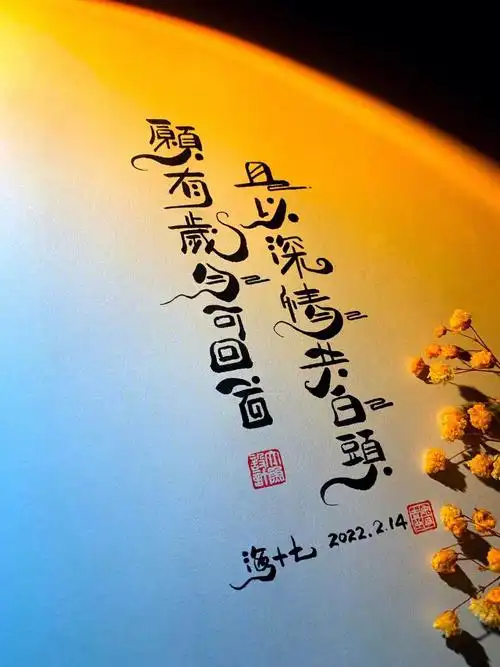 願有歲月可回首
且以深情共白頭
海十七 2022.2.14
設計